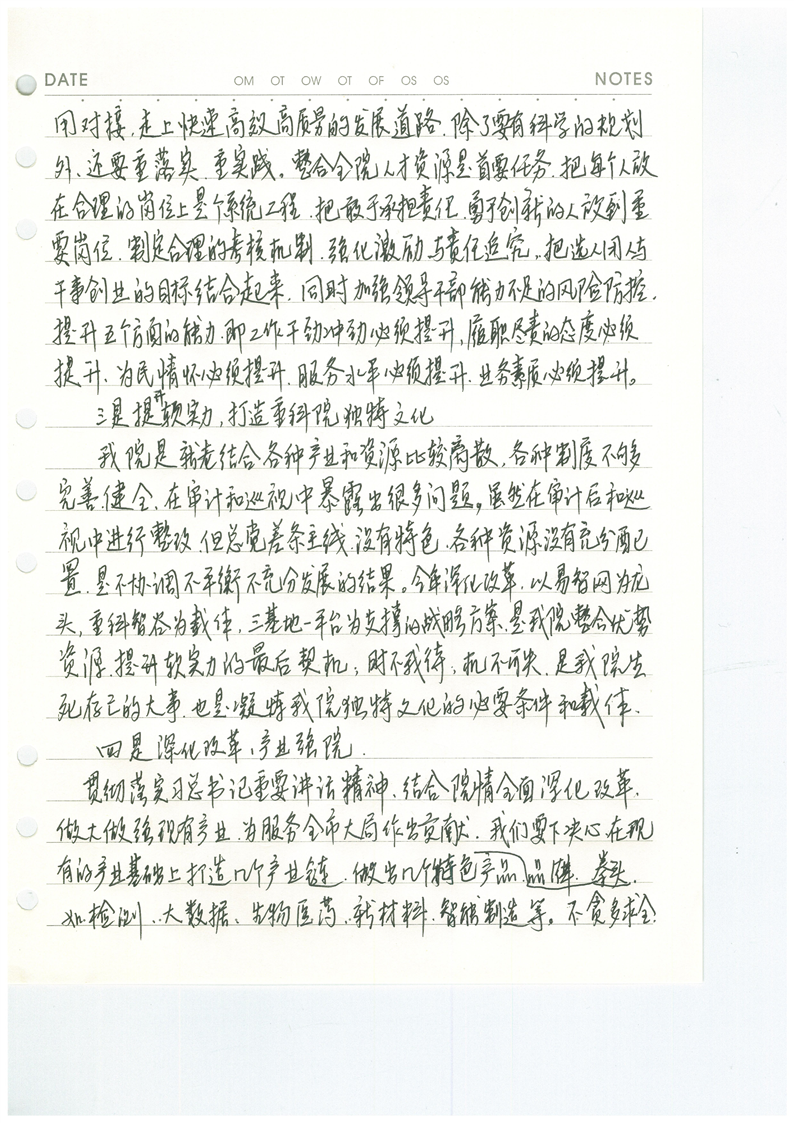 DATE
OM OT OW OT OF OS OS
NOTES
用对接,走上快速高效高质量的发展道路.除了要有科学的规划
外.还要重落实.重实践。整合全院人才资源是首要任务.把每个人放
在合理的岗位上是个系统工程.把敢于承担责任.勇于创新的人放到重
要岗位.制定合理的考核机制.强化激励与责任追究.把选人团人与
干事创业的目标结合起来.同时加强领导干部能力不足的风险防控.
提升五个方面的能力.即工作干劲冲动必须提升,履职尽责的态度必须
提升.为民情怀必须提升.服务水平必须提升.业务素质必须提升。
三是提升软实力,打造重科院独特文化
我院是新老结合各种产业和资源比较离散,各种制度不够
完善健全.在审计和巡视中暴露出很多问题。虽然在审计后和巡
视中进行整改.但总觉差条主线.没有特色.各种资源没有充分配
置.是不协调不平衡不充分发展的结果。今年深化改革.以易智网为龙
头,重科智谷为载体,三基地一平台为支撑的战略方案.是我院整合优势
资源.提升软实力的最后契机,时不我待,机不可失.是我院生
死存亡的大事.也是凝炼我院独特文化的必要条件和载体.
四是深化改革、产业强院.
贯彻落实习总书记重要讲话精神、结合院情全面深化改革.
做大做强现有产业.为服务全市大局作出贡献.我们要下决心.在现
有的产业基础上打造几个产业链.做出几个特色产品品牌.拳头.
如检测、大数据、生物医药、新材料.智能制造等。不贪多求全.